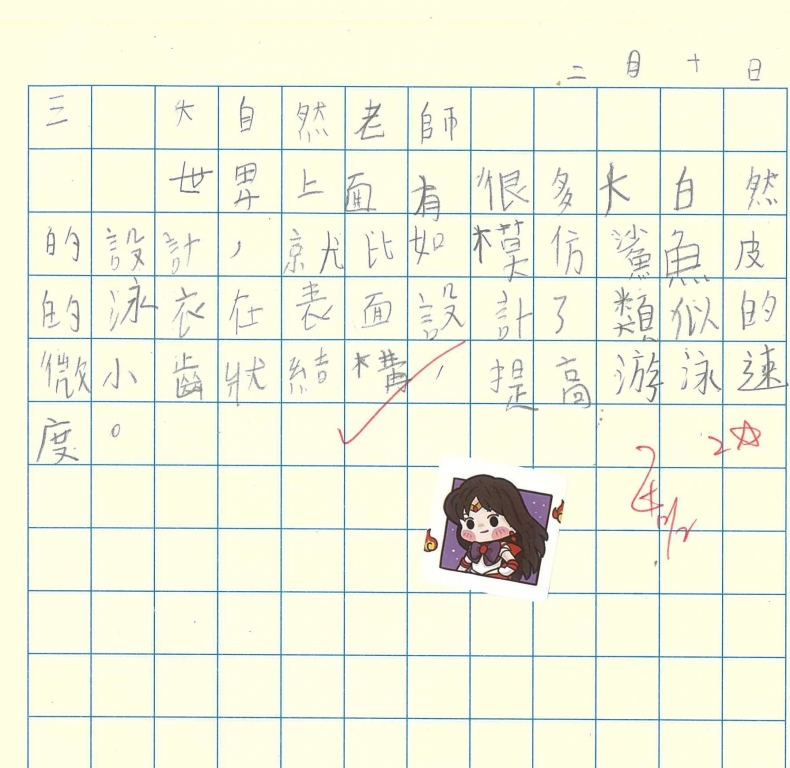 二月十日
三 大自然老師
世界上面有很多大自然
的設計，就比如模仿鯊魚皮
的泳衣在表面設計了類似的
微小齒狀結構，提高游泳速
度。
2☆